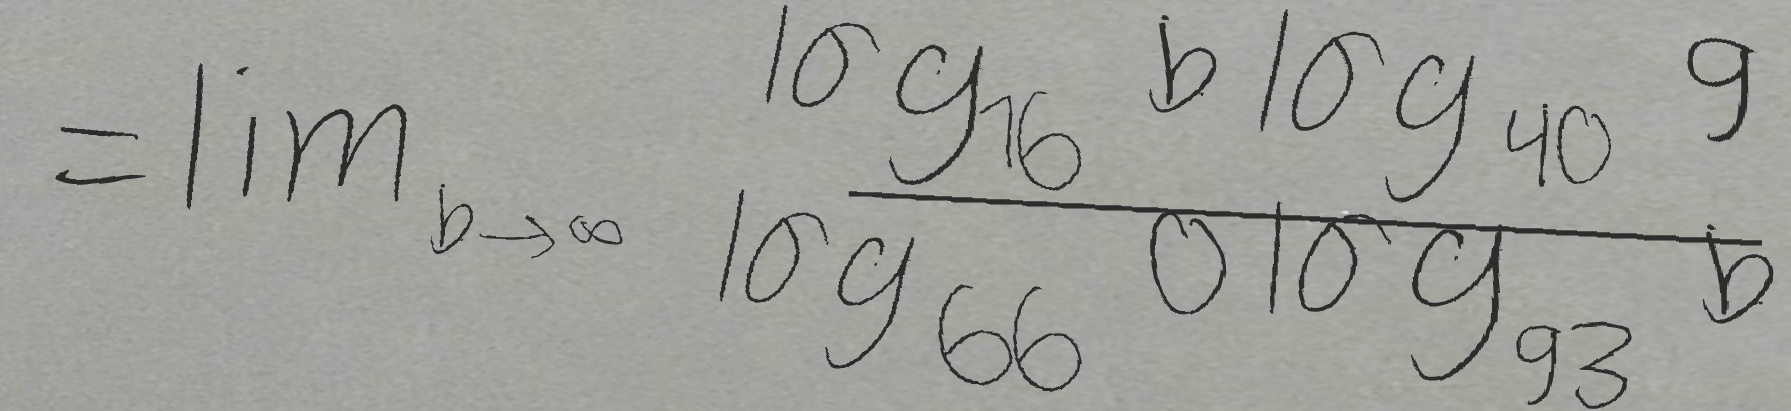 = lim_{b→∞} \frac{log_{16} b log_{40} 9}{log_{66} 0 log_{93} b}